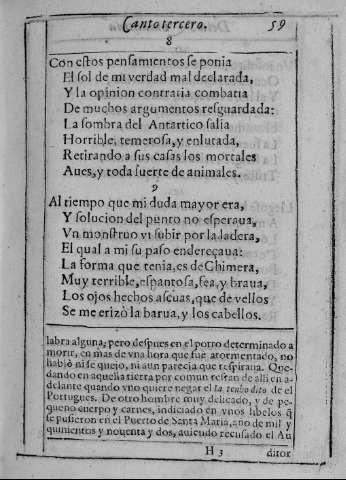 Canto tercero. 59
8
Con estos pensamientos se ponia
El sol de mi verdad mal declarada,
Y la opinion contraria combatia
De muchos argumentos resguardada:
La sombra del Antartico salia
Horrible, temerosa, y enlutada,
Retirando a sus casas los mortales
Aues, y toda suerte de animales.
9
Al tiempo que mi duda mayor era,
Y solucion del punto no esperaua,
Vn monstruo vi subir por la ladera,
El qual a mi su paso endereçaua:
La forma que tenia, es de Chimera,
Muy terrible, espantosa, fea, y braua,
Los ojos hechos ascuas, que de vellos
Se me erizò la barua, y los cabellos.
labra alguna; pero despues en el potro determinado a
morir, en mas de vna hora que fue atormentado, no
habló ni se quejo, ni aun parecia que respiraua. Que-
dando en aquella tierra por comun refran de alli en a-
delante quando vno quiere negar el la tenho dito de el
Portugues. De otro hombre muy delicado, y de pe-
queno cuerpo y carnes, indiciado en vnos libelos q̃
se pusieron en el Puerto de Santa Maria, ano de mil y
quinientos y nouenta y dos, auiendo recusado el Au
H 3 ditor